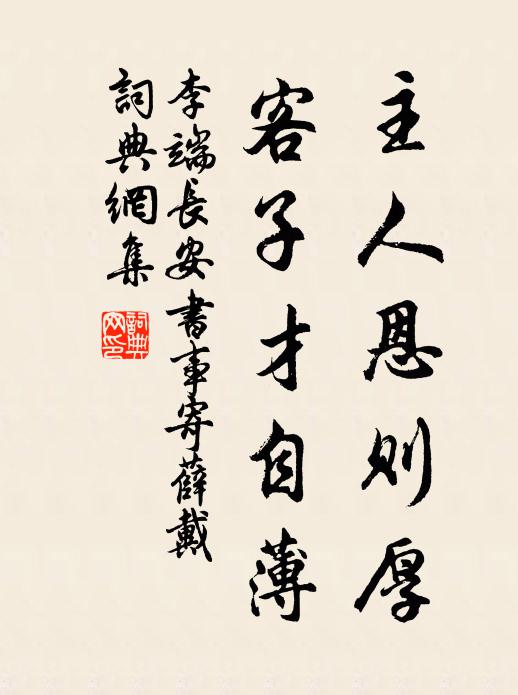 主人恩则厚
客子才自薄
李端長安書事寄薛戴
詞典網集
詞典網印